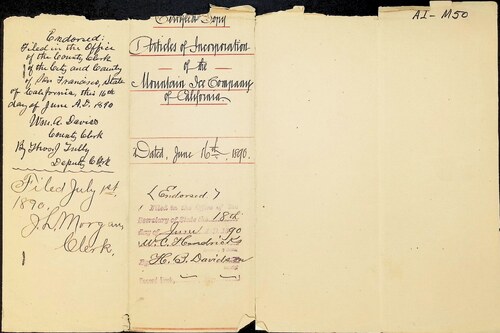 Endorsed:
Filed in the Office
of the County Clerk
of the City and County
of San Francisco, State
of California, this 16th
day of June A.D. 1890
Wm. A. Davies
County Clerk
By Thos J Tully
Deputy Clerk
Filed July 1st.
1890.
J.L. Morgan
Clerk.
Certified Copy
Articles of Incorporation
of the
Mountain Ice Company
of California
Dated, June 16th, 1890.
(Endorsed)
Filed in the Office of the
Secretary of State the 18th
day of June 1890
W.C. Hendricks
By H. B. Davidson
Record Book,
A1-M50